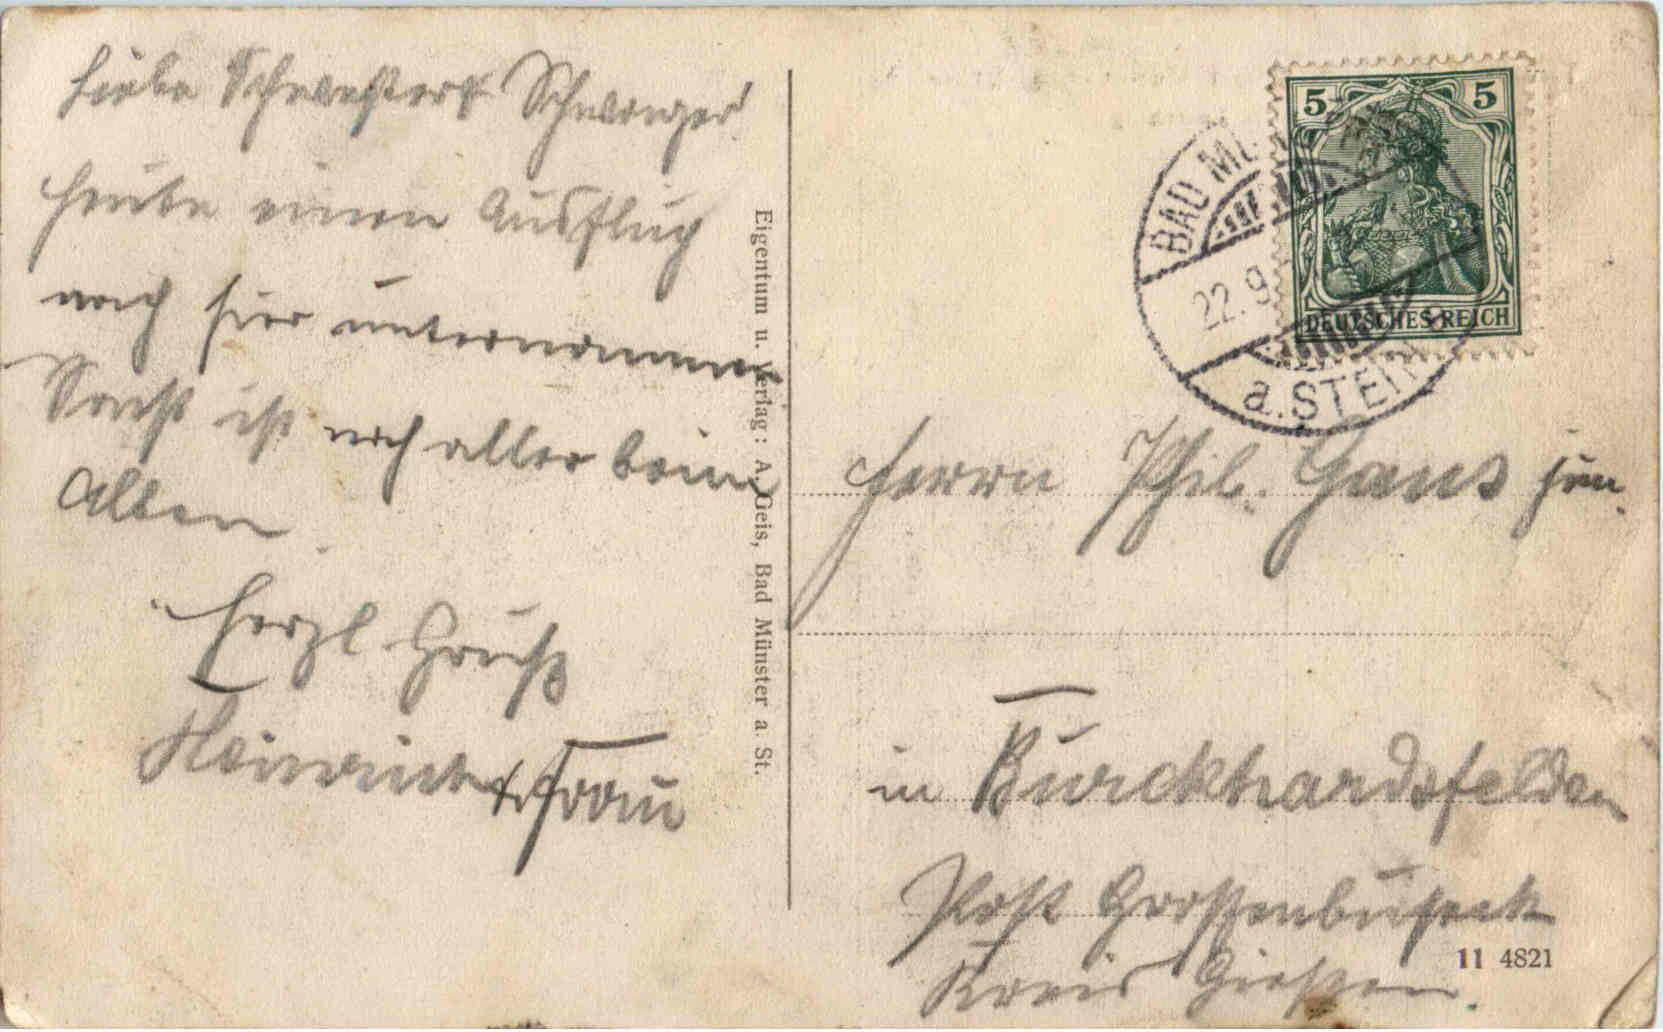 Liebe Schwester & Schwager
Heute einen Ausflug
nach hier unternommen
Sonst ist noch alles beim
Alten.
Herzl Gruß
Heinrich & Frau
Eigentum u. Verlag: A. Geis, Bad Münster a. St.
5 5
DEUTSCHES REICH
BAD MÜ
22.9
a. STEIN
Herrn Phil. Gans jun.
in Burckhardsfelden
Post Grossenbuseck
Kreis Giessen.
11 4821